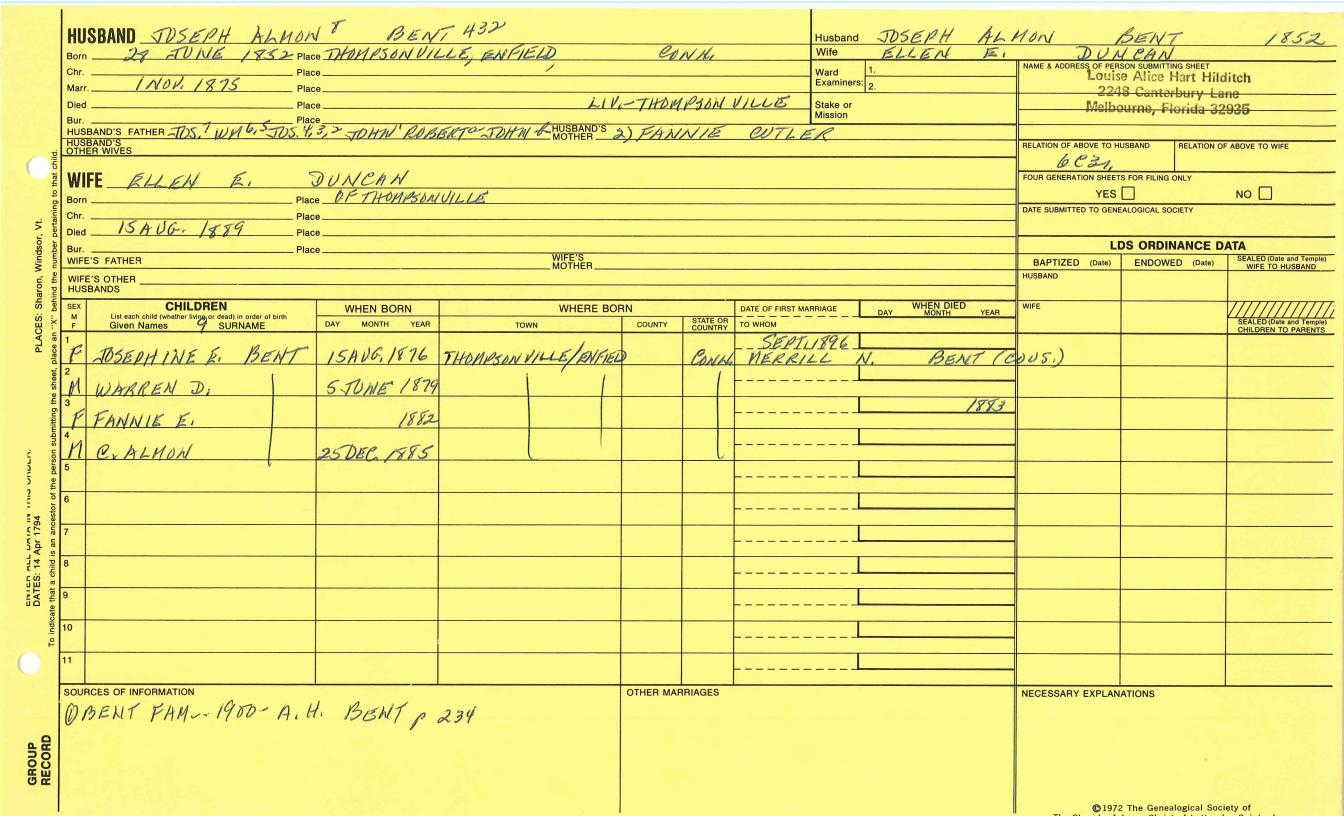 HUSBAND JOSEPH ALMON 8 BENT 432
Born 28 JUNE 1852 Place THOMPSONVILLE, ENFIELD, CONN.
Chr. Place
Marr. 1 NOV. 1875 Place
Died Place LIV.-THOMPSONVILLE
Bur. Place
HUSBAND'S FATHER JOS.7 WM 6,5 JOS. 4,3,2 JOHN 1 ROBERT a JOHN b HUSBAND'S MOTHER 2) FANNIE CUTLER
HUSBAND'S OTHER WIVES
WIFE ELLEN E. DUNCAN
Born Place OF THOMPSONVILLE
Chr. Place
Died 15 AUG. 1889 Place
Bur. Place
WIFE'S FATHER WIFE'S MOTHER
WIFE'S OTHER HUSBANDS
Husband JOSEPH ALMON BENT 1852
Wife ELLEN E. DUNCAN
Ward Examiners: 1. 2.
Stake or Mission
NAME & ADDRESS OF PERSON SUBMITTING SHEET
Louise Alice Hart Hilditch
2248 Canterbury Lane
Melbourne, Florida 32935
RELATION OF ABOVE TO HUSBAND RELATION OF ABOVE TO WIFE
6C3r,
FOUR GENERATION SHEETS FOR FILING ONLY
YES NO
DATE SUBMITTED TO GENEALOGICAL SOCIETY
LDS ORDINANCE DATA
BAPTIZED (Date) ENDOWED (Date) SEALED (Date and Temple) WIFE TO HUSBAND
HUSBAND
WIFE
SEALED (Date and Temple) CHILDREN TO PARENTS
SEX M F
CHILDREN
List each child (whether living or dead) in order of birth
Given Names 9 SURNAME
WHEN BORN
DAY MONTH YEAR
WHERE BORN
TOWN COUNTY STATE OR COUNTRY
DATE OF FIRST MARRIAGE
TO WHOM
WHEN DIED
DAY MONTH YEAR
1 SEPT. 1896
F JOSEPHINE E. BENT 15 AUG. 1876 THOMPSONVILLE/ENFIELD CONN. MERRILL N. BENT (COUS.)
2
M WARREN D. 5 JUNE 1879
3 1883
F FANNIE E. 1882
4
M C. ALMON 25 DEC. 1885
5
6
7
8
9
10
11
SOURCES OF INFORMATION
① BENT FAM-- 1900- A.H. BENT p 234
OTHER MARRIAGES
NECESSARY EXPLANATIONS
©1972 The Genealogical Society of
PLACES: Sharon, Windsor, Vt.
DATES: 14 Apr 1794
To indicate that a child is an ancestor of the person submitting the sheet, place an "X" behind the number pertaining to that child.
GROUP RECORD